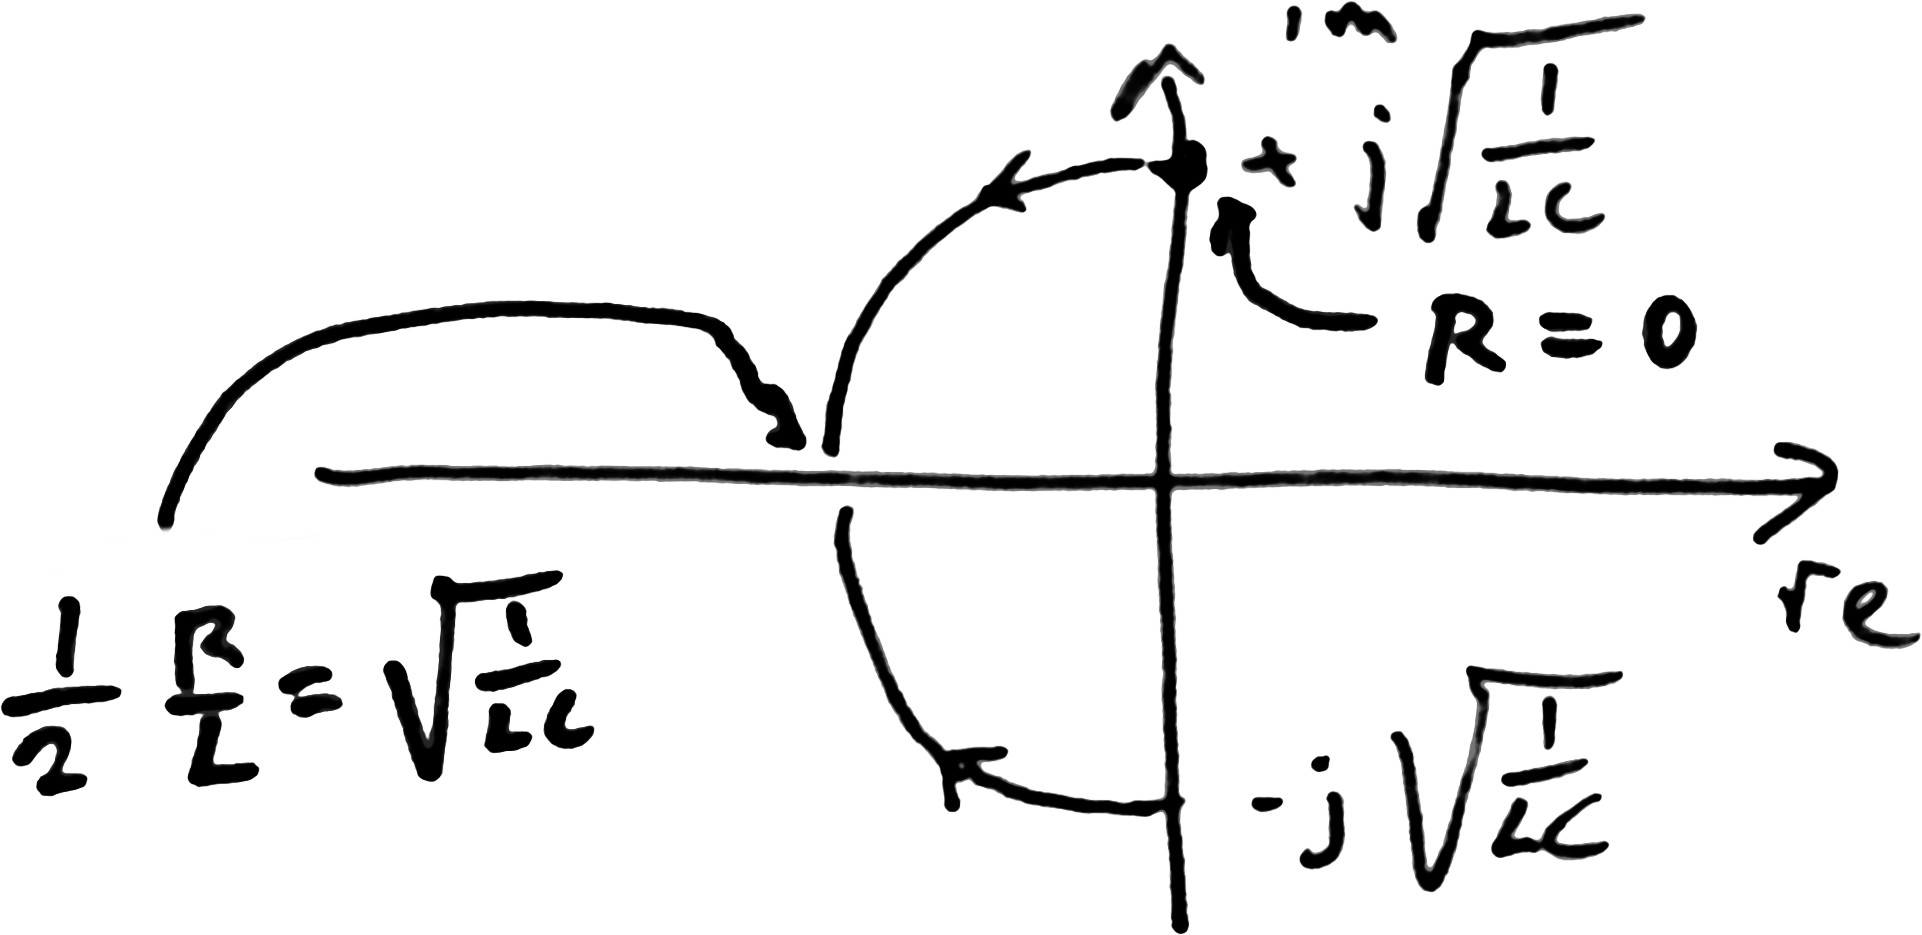 im
+ j√(1/LC)
R = 0
re
1/2 R/L = √(1/LC)
- j√(1/LC)